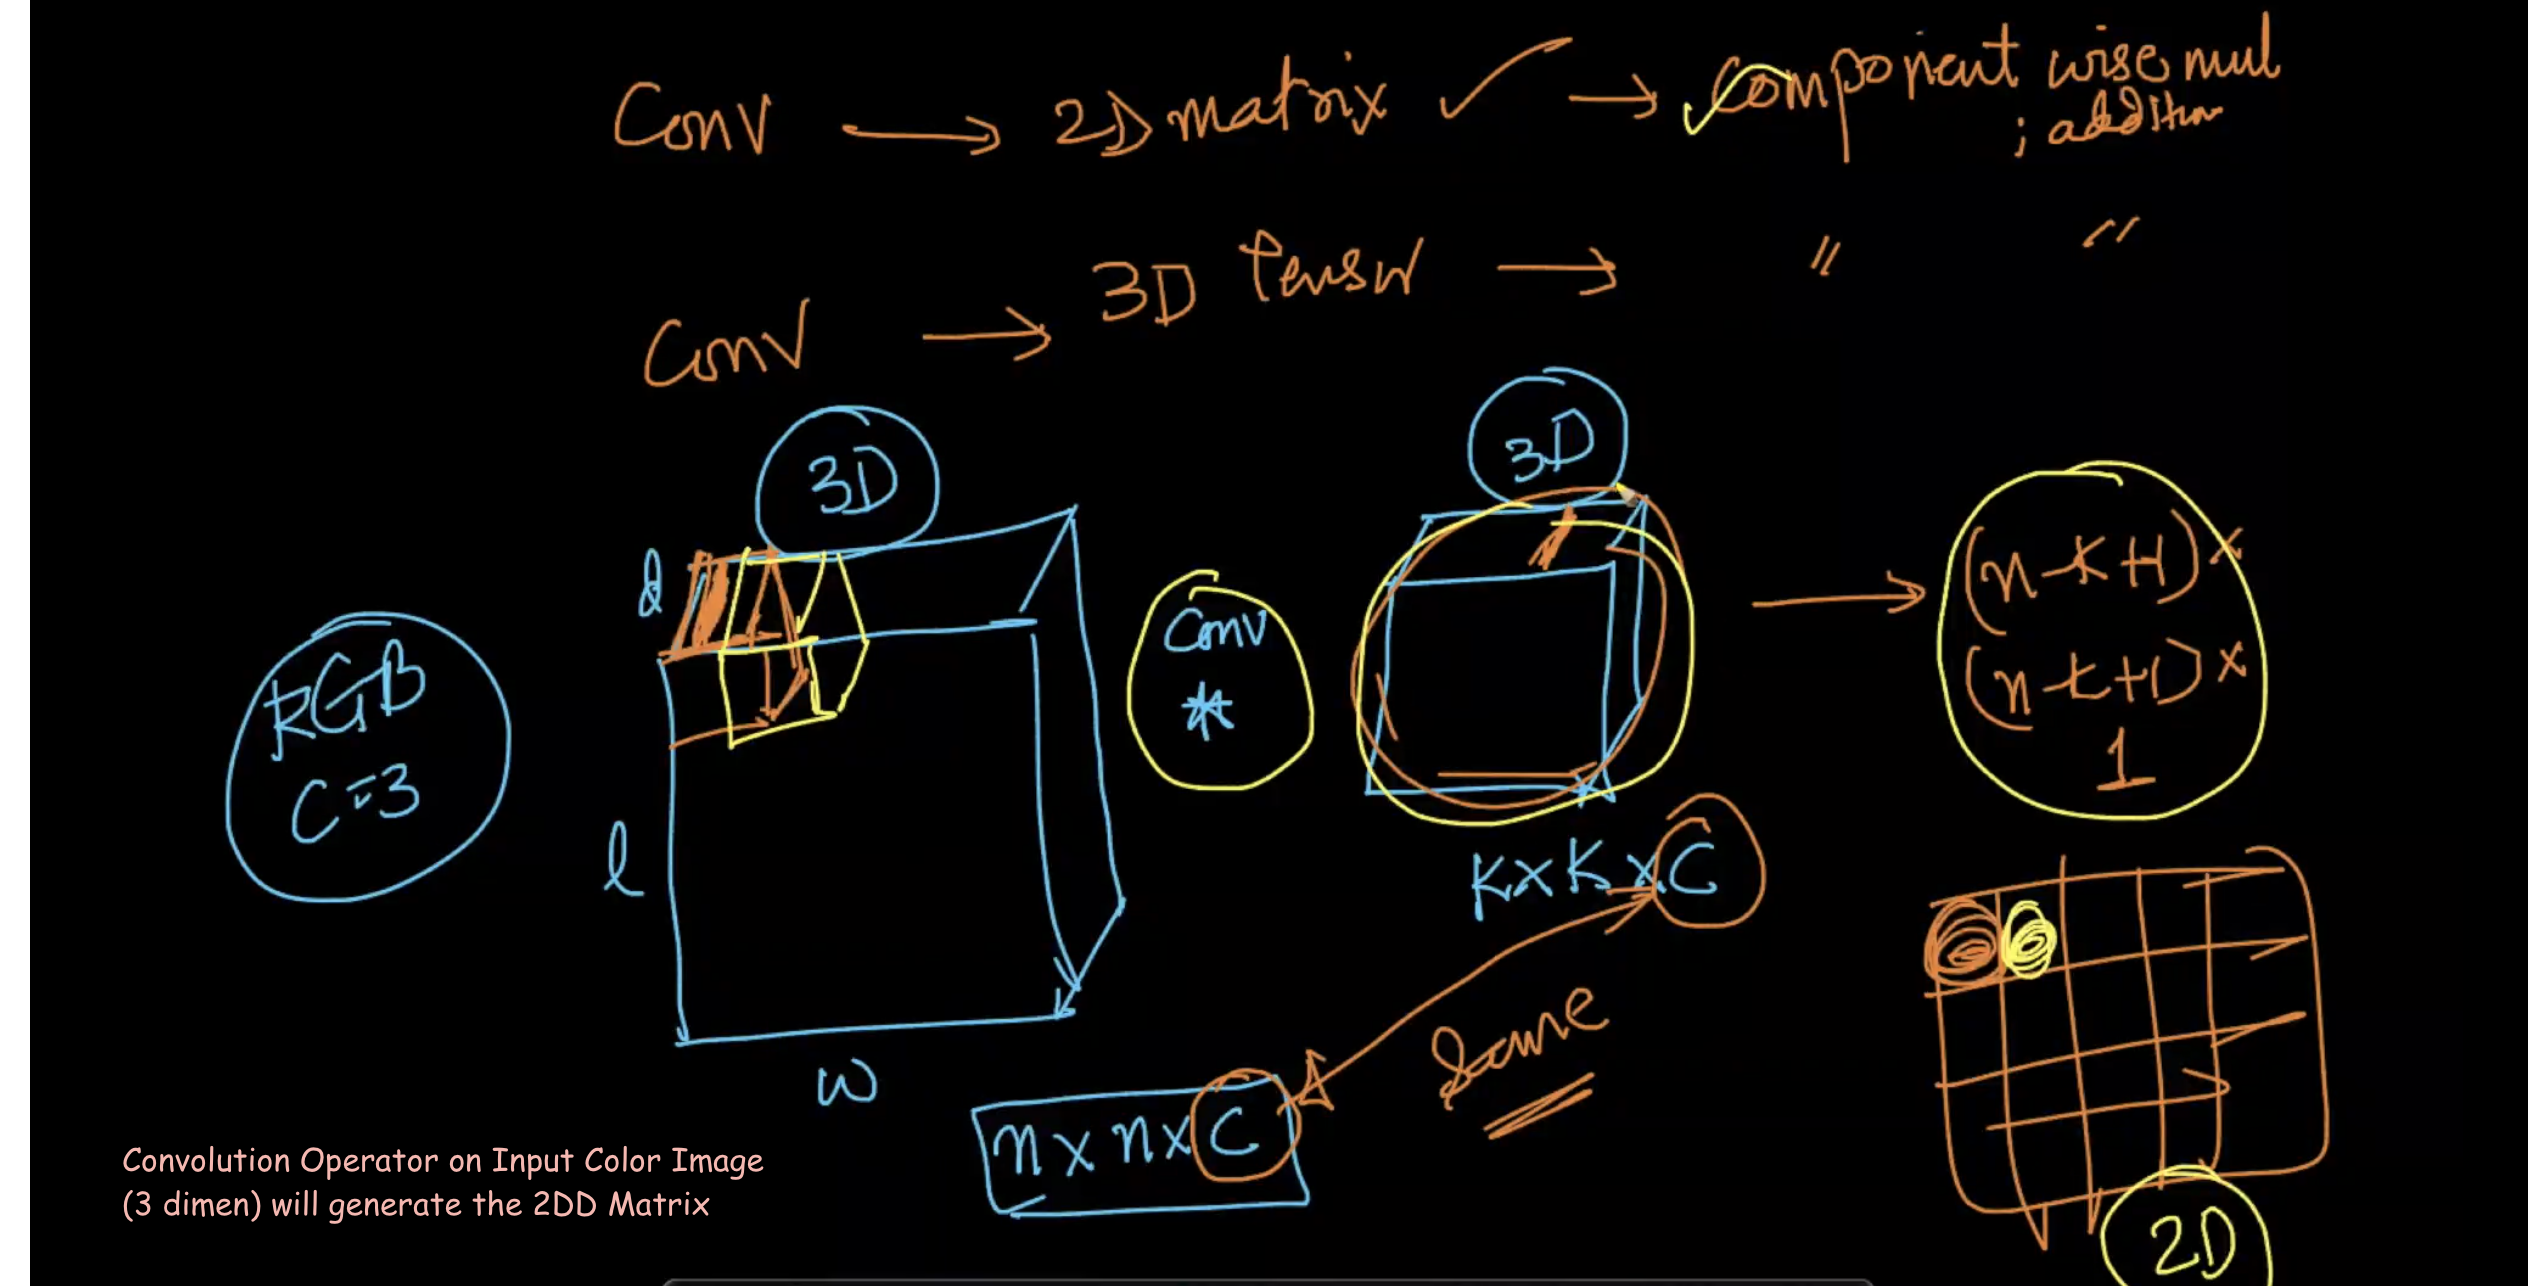 Conv → 2D matrix ✓ → Component wise mul
; addition
Conv → 3D Tensor → " "
3D
3D
d
RGB
C=3
Conv
*
(n-k+1)x
(n-k+1)x
1
l
KxKxC
w
Same
nxnxC
2D
Convolution Operator on Input Color Image
(3 dimen) will generate the 2DD Matrix